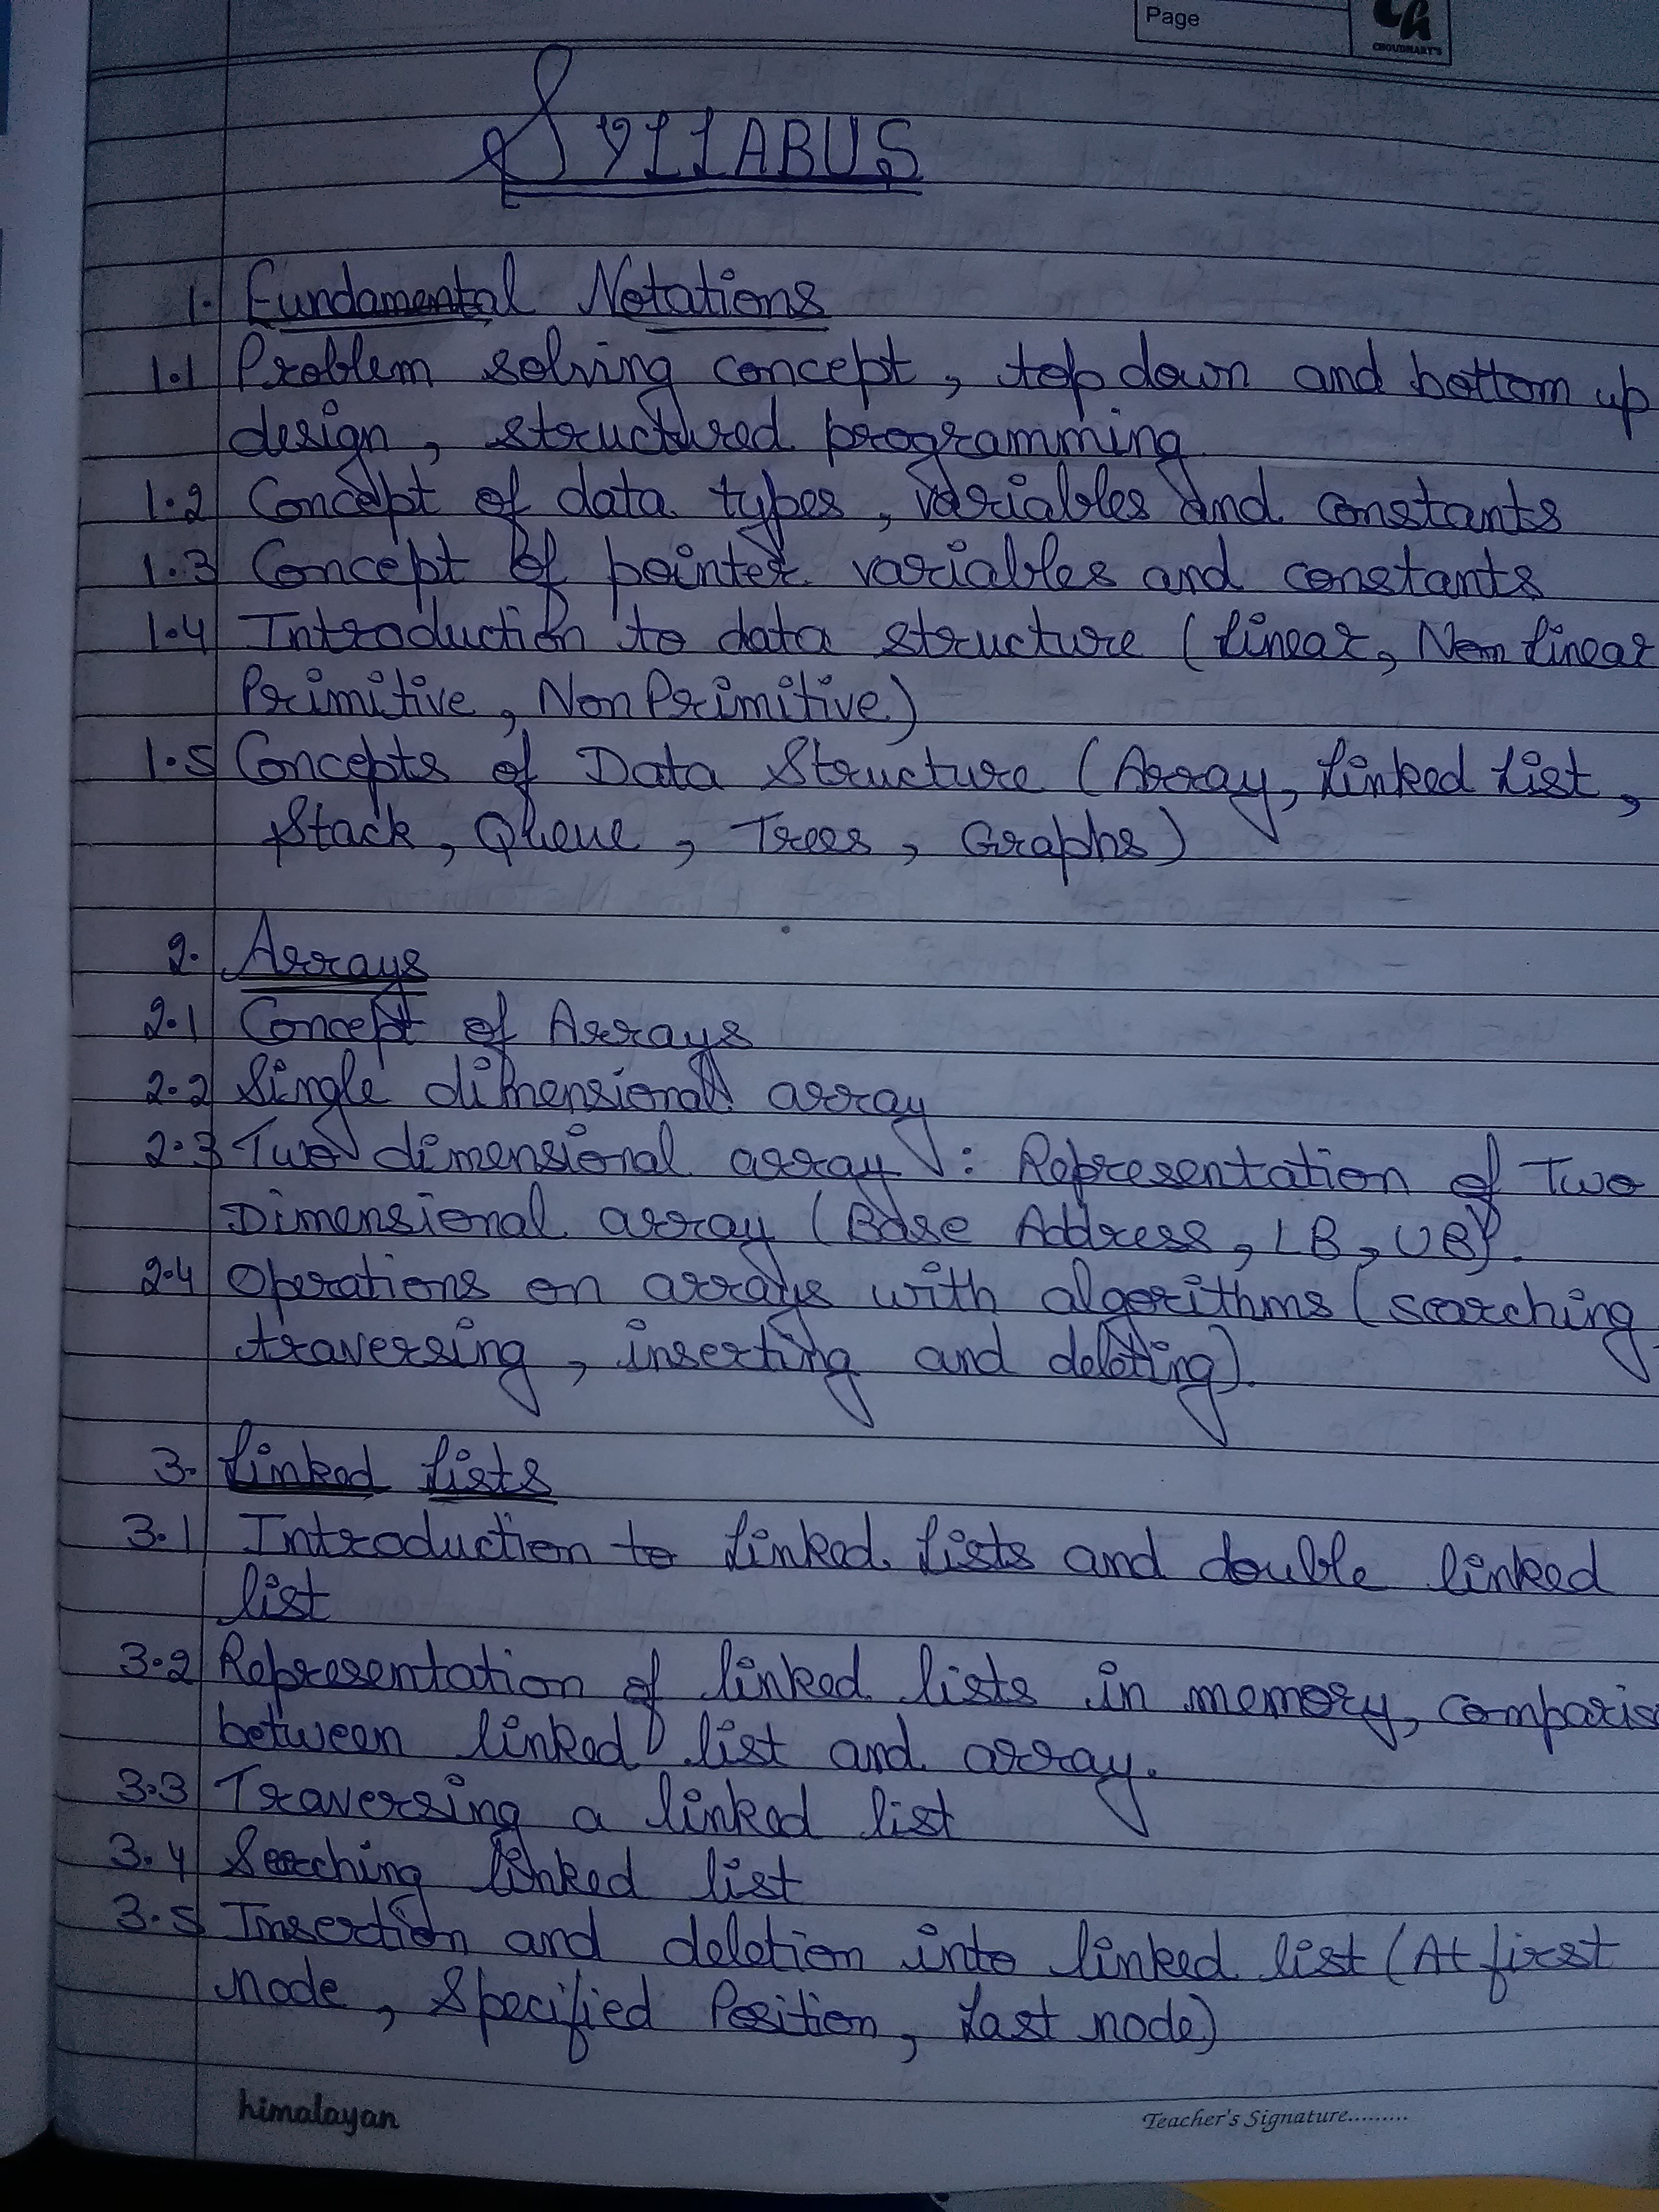 Page
CHOUDHARY'S
SYLLABUS
1. Fundamental Notations
1.1 Problem solving concept, top down and bottom up
design, structured programming
1.2 Concept of data types, variables and constants
1.3 Concept of pointer variables and constants
1.4 Introduction to data structure (Linear, Non Linear
Primitive, Non Primitive)
1.5 Concepts of Data Structure (Array, Linked List,
Stack, Queue, Trees, Graphs)
2. Arrays
2.1 Concept of Arrays
2.2 Single dimensional array
2.3 Two dimensional array : Representation of Two
Dimensional array (Base Address, LB, UB).
2.4 Operations on arrays with algorithms (searching,
traversing, inserting and deleting)
3. Linked Lists
3.1 Introduction to Linked Lists and double linked
list
3.2 Representation of linked lists in memory, comparis
between linked list and array.
3.3 Traversing a linked list
3.4 Searching linked list
3.5 Insertion and deletion into linked list (At first
node, Specified Position, Last node)
himalayan
Teacher's Signature.........